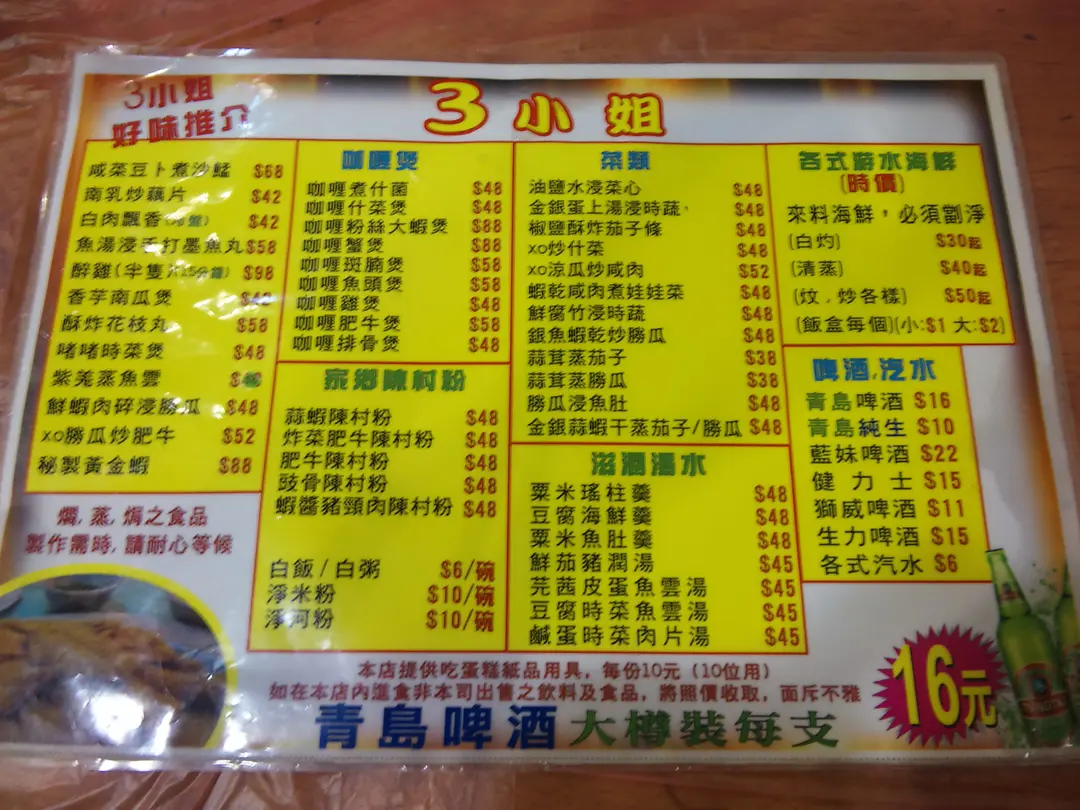 3小姐
好味推介
3小姐
咸菜豆卜煮沙鯭 $68
南乳炒藕片 $42
白肉飄香 $42
魚湯浸手打墨魚丸 $58
醉雞(半隻 $98
香芋南瓜煲
酥炸花枝丸 $58
啫啫時菜煲 $48
紫羌蒸魚雲
鮮蝦肉碎浸勝瓜 $48
xo勝瓜炒肥牛 $52
秘製黃金蝦 $88
燜, 蒸, 焗之食品
製作需時, 請耐心等候
咖喱煲
咖喱煮什菌 $48
咖喱什菜煲 $48
咖喱粉絲大蝦煲 $88
咖喱蟹煲 $88
咖喱斑腩煲 $58
咖喱魚頭煲 $58
咖喱雞煲 $48
咖喱肥牛煲 $58
咖喱排骨煲 $48
家鄉陳村粉
蒜蝦陳村粉 $48
炸菜肥牛陳村粉 $48
肥牛陳村粉 $48
豉骨陳村粉 $48
蝦醬豬頸肉陳村粉 $48
白飯/白粥 $6/碗
淨米粉 $10/碗
淨河粉 $10/碗
菜類
油鹽水浸菜心 $48
金銀蛋上湯浸時蔬 $48
椒鹽酥炸茄子條 $48
xo炒什菜 $48
xo涼瓜炒咸肉 $52
蝦乾咸肉煮娃娃菜 $48
鮮腐竹浸時蔬 $48
銀魚蝦乾炒勝瓜 $48
蒜茸蒸茄子 $38
蒜茸蒸勝瓜 $38
勝瓜浸魚肚 $48
金銀蒜蝦干蒸茄子/勝瓜 $48
滋潤湯水
粟米瑤柱羹 $48
豆腐海鮮羹 $48
粟米魚肚羹 $48
鮮茄豬潤湯 $45
芫茜皮蛋魚雲湯 $45
豆腐時菜魚雲湯 $45
鹹蛋時菜肉片湯 $45
各式游水海鮮
(時價)
來料海鮮，必須劏淨
(白灼) $30起
(清蒸) $40起
(炆，炒各樣) $50起
(飯盒每個)(小:$1 大:$2)
啤酒,汽水
青島啤酒 $16
青島純生 $10
藍妹啤酒 $22
健力士 $15
獅威啤酒 $11
生力啤酒 $15
各式汽水 $6
本店提供吃蛋糕紙品用具，每份10元（10位用）
如在本店內進食非本司出售之飲料及食品，將照價收取，面斥不雅
青島啤酒大樽裝每支
16元